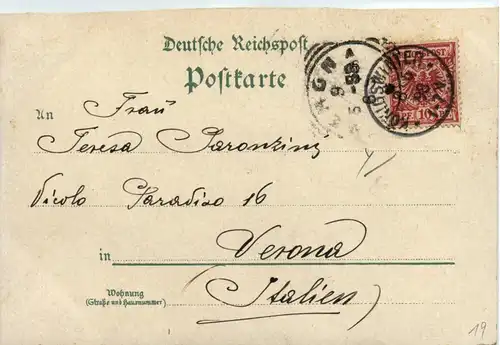 Deutsche Reichspost
Postkarte
An
Frau
Teresa Paronzini
Vicolo Paradiso 16
in
Verona
(Italien)
Wohnung
(Straße und Hausnummer)
10
19